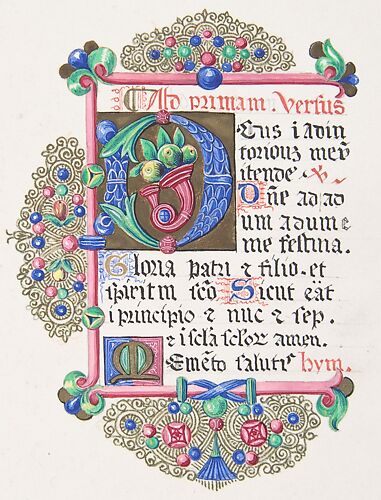 Ad primam Versus
Deus i adiu
toriouz meuʒ
itende. ℟
Dne ad ad
um adume
me festina.
Gloria patri ⁊ filio. et
spiritui scō Sicut eāt
i principio ⁊ nuc ⁊ sep.
⁊ i sclā sclor amen.
Memēto salutis hym.